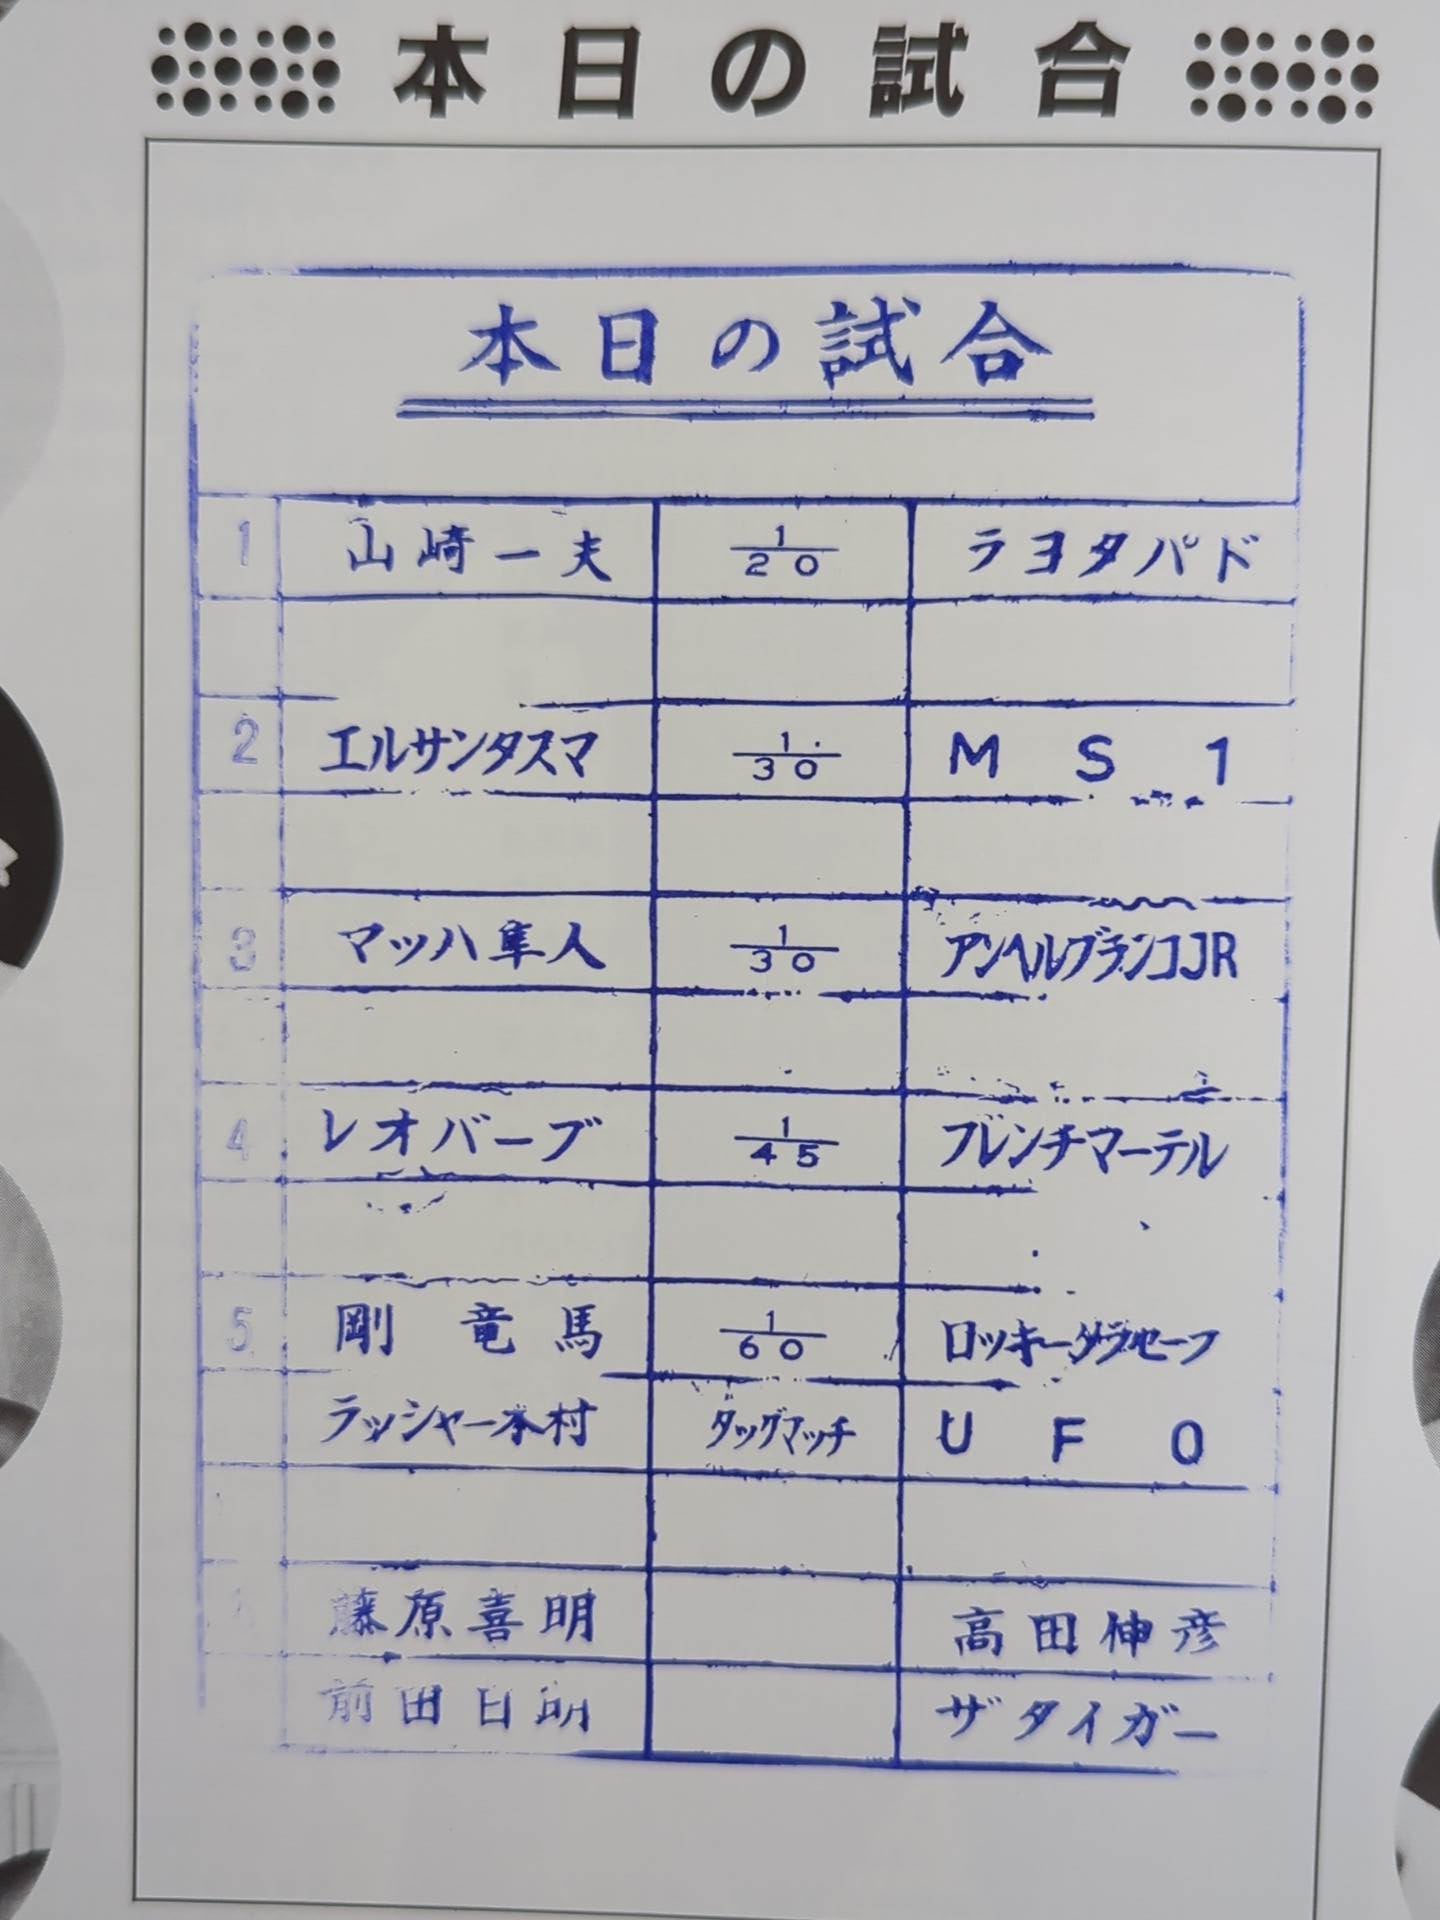 本日の試合
本日の試合
1 山崎一夫 1/20 ラヨタパド
2 エルサンタスマ 1/30 MS1
3 マッハ隼人 1/30 アンヘルブランコJR
4 レオバーブ 1/45 フレンチマーテル
5 剛竜馬 1/60 ロッキーダラセーフ
ラッシャー木村 タッグマッチ UFO
藤原喜明 高田伸彦
前田日明 ザタイガー